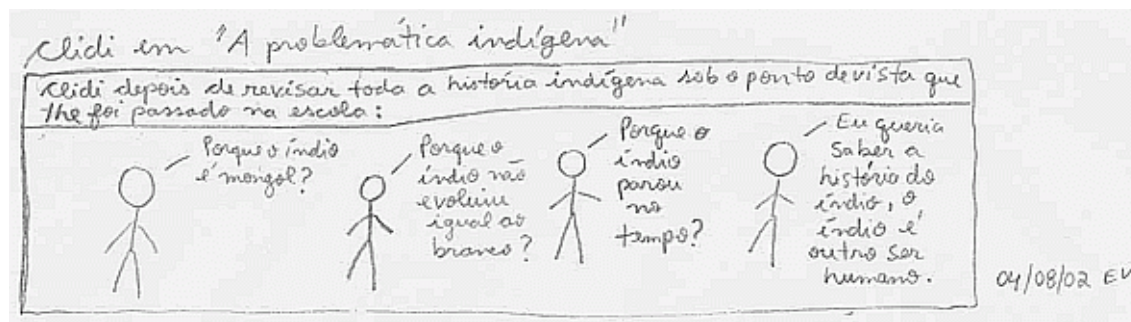 Clidi em "A problemática indígena"
Clidi depois de revisar toda a história indígena sob o ponto de vista que
lhe foi passado na escola:
Porque o índio
é mongol?
Porque o
índio não
evoluiu
igual ao
branco?
Porque o
índio
parou
no
tempo?
Eu queria
saber a
história do
índio, o
índio é
outro ser
humano.
04/08/02 EV